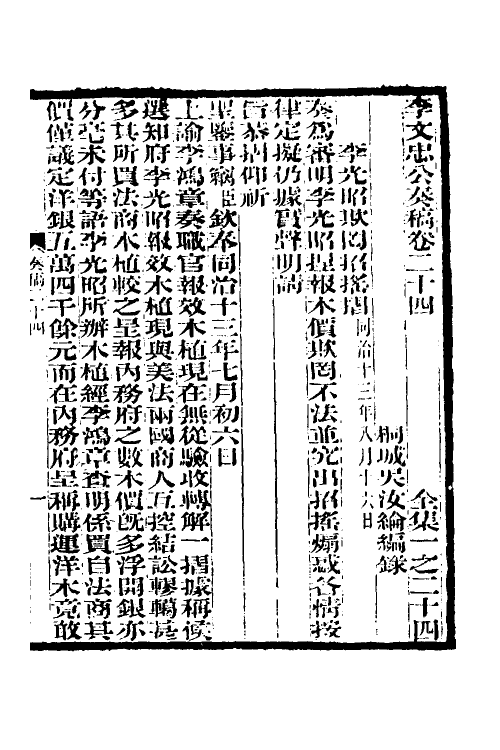 李文忠公奏稿卷二十四　全集一之二十四
桐城吳汝綸編錄
李光昭欺罔招搖摺同治十三年八月十六日
奏爲審明李光昭捏報木價欺罔不法並究出招搖煽惑各情按
律定擬仍據實聲明請
旨恭摺仰祈
聖鑒事竊臣欽奉同治十三年七月初六日
上諭李鴻章奏職官報效木植現在無從驗收轉解一摺據稱候
選知府李光昭報效木植現與美法兩國商人互控結訟轇轕甚
多其所買法商木植較之呈報內務府之數木價旣多浮開銀亦
分毫未付等語李光昭所辦木植經李鴻章查明係買自法商其
價僅議定洋銀五萬四千餘元而在內務府呈稱購運洋木竟敢
奏稿二十四
一